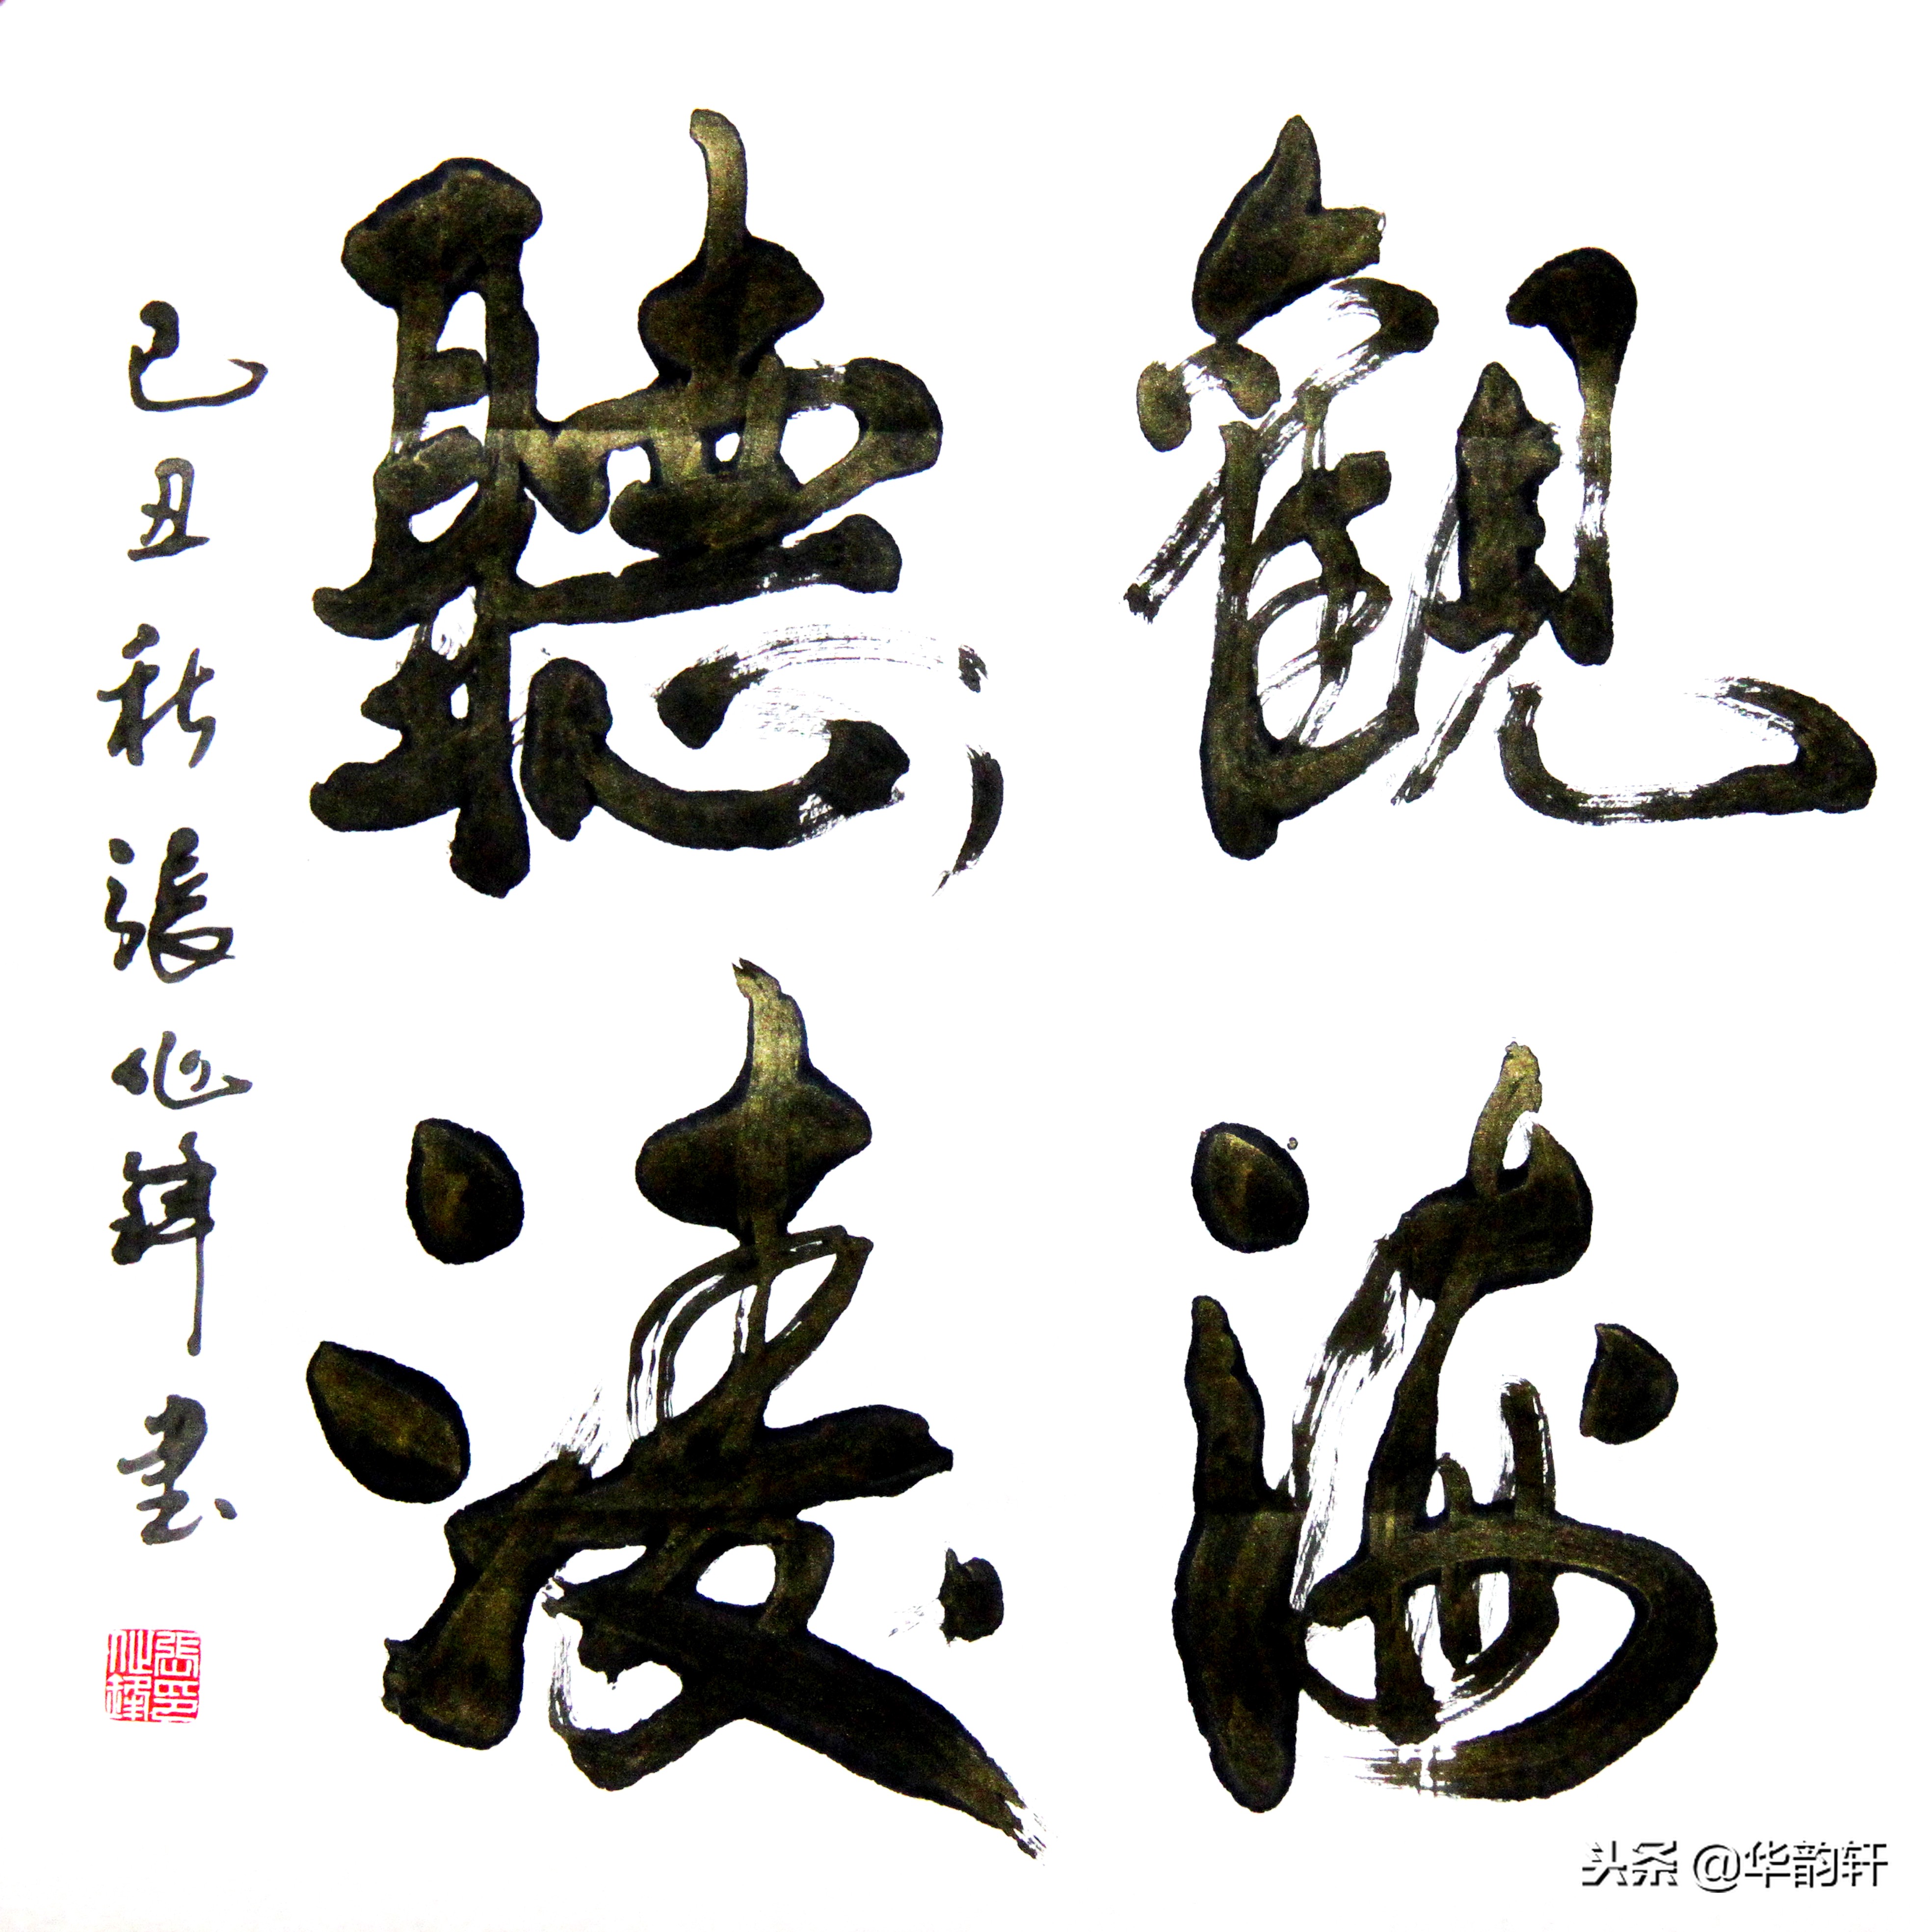 觀海
聽濤
己丑秋張鋒書
头条 @华韵轩